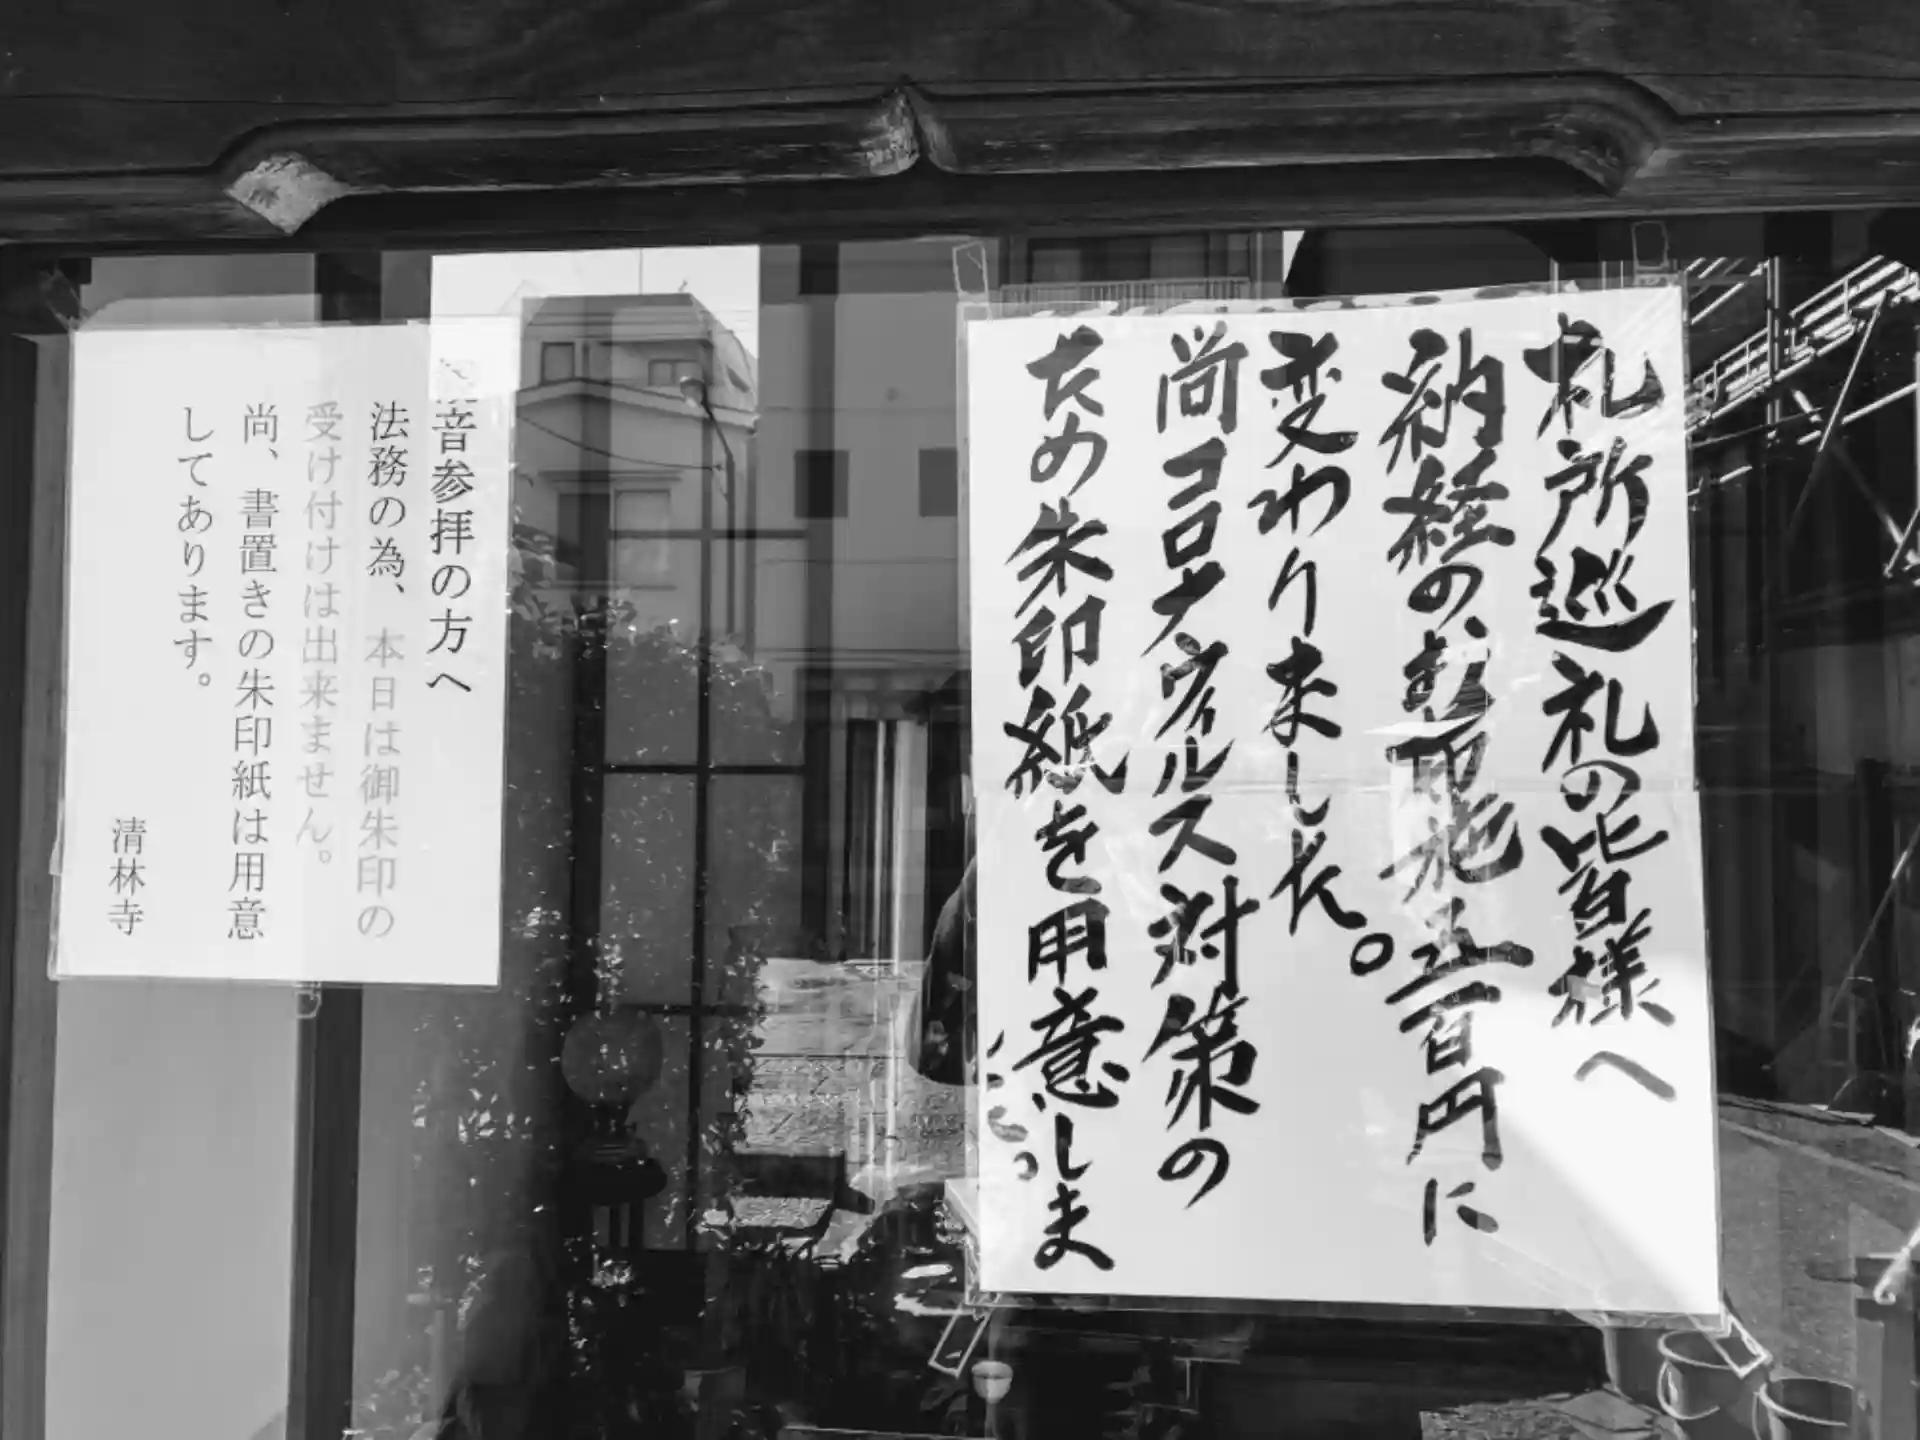 札所巡礼の皆様へ
納経のお布施五百円に
変わりました。
尚コロナウィルス対策の
ため朱印紙を用意しま
観音参拝の方へ
法務の為、本日は御朱印の
受け付けは出来ません。
尚、書置きの朱印紙は用意
してあります。
清林寺